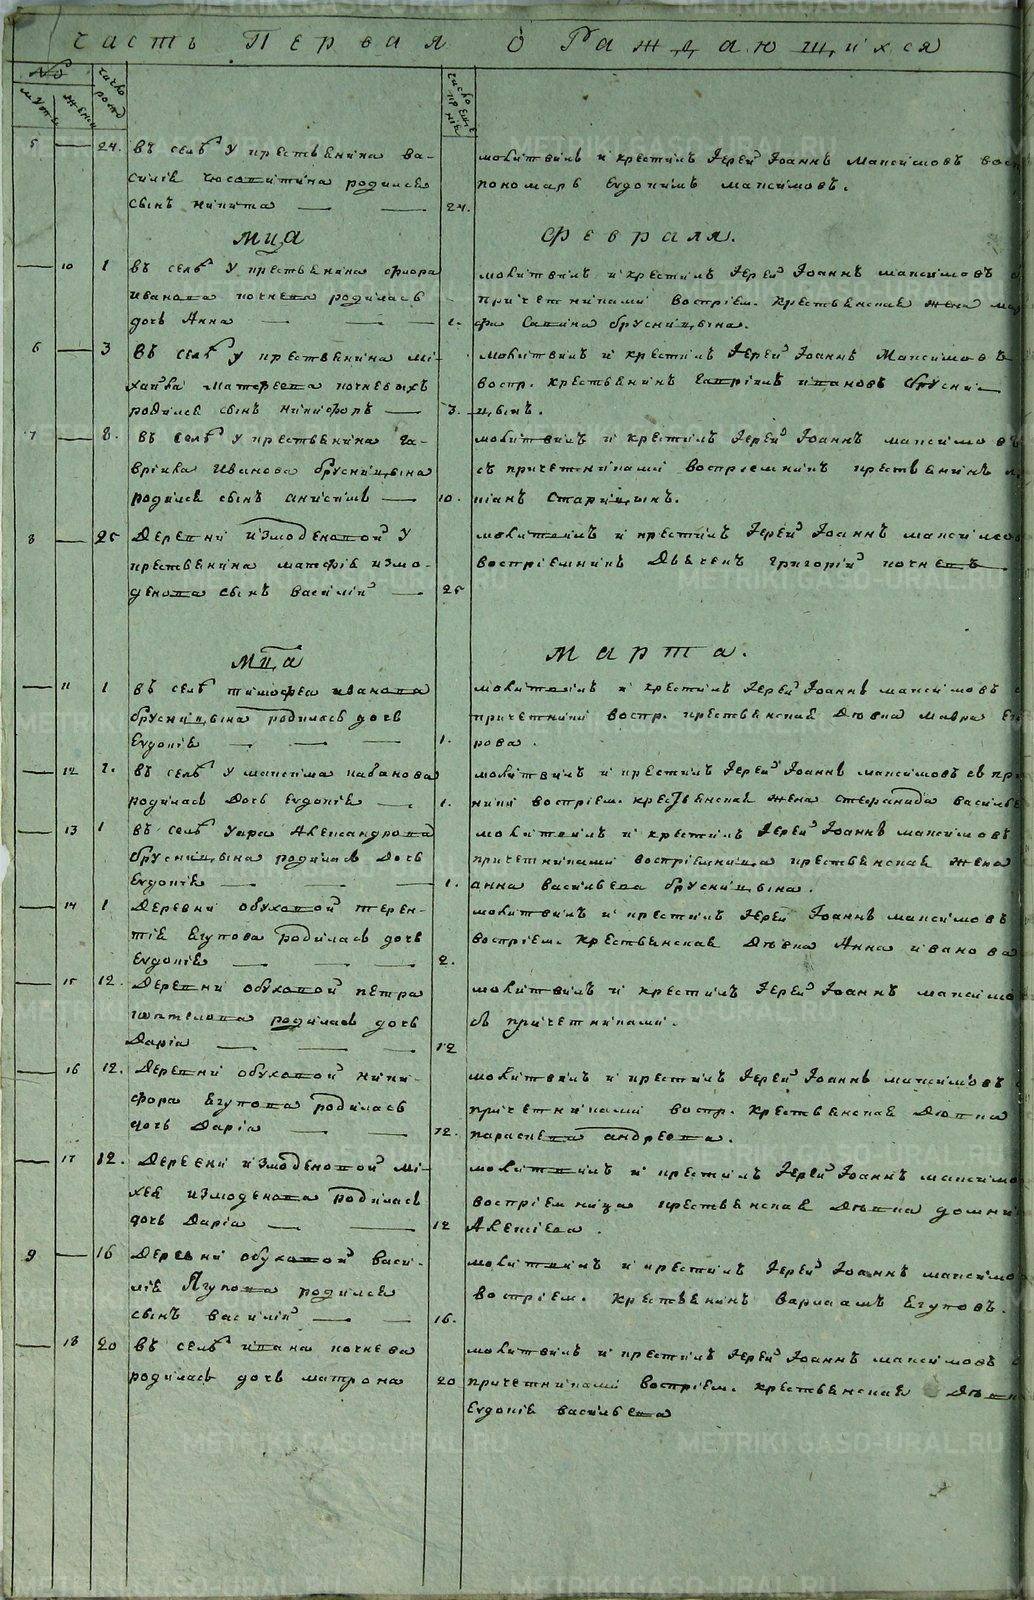 Часть Первая о Раждающихся
№
мужи
женски
число рожд
число крещенія
5 — 24. въ селѣ у крестьянина ва-
силія чюсовитина родился
сынъ никита — — 24.
молитвилъ и крестилъ Іерей Іоаннъ Максимовъ вос
пономарь Евдокимъ максимовъ.
Мца Февраля.
— 10 1 въ селѣ у крестьянина флора
иванова почнева родилась
дочь Анна — — — 1.
молитвилъ и крестилъ Іерей Іоаннъ максимовъ с
причетниками воспріем. крестьянская жена мар
фа Савина брусницына.
6 — 3 въ селѣ у крестьянина ми-
хайла матфеева почневыхъ
родился сынъ никифоръ — 3.
молитвилъ и крестилъ Іерей Іоаннъ Максимовъ
воспр. крестьянинъ Гаврилъ ивановъ брусни—
цынъ.
7 — 8. въ селѣ у крестьянина га-
врилка Иванова брусницына
родился сынъ анисимъ — 10.
молитвилъ и крестилъ Іерей Іоаннъ максимовъ
съ причетниками воспріемникъ крестьянинъ
піанъ Старицынъ.
8 — 25 Деревни измоденовой у
крестьянина матфія измо-
денова сынъ василій — 25
молитвилъ и крестилъ Іерей Іоаннъ максимов
воспріемникъ Дьячекъ григорій почневъ
Мца Марта.
— 11 1 въ селѣ тимофеа иванова
брусницына родилась дочь
Евдокія — — — 1.
молитвилъ и крестилъ Іерей Іоаннъ максимовъ с
причетники воспр. крестьянская Дѣвка мавра Его
рова.
— 12 1. въ селѣ у максима кабанова
родилась Дочь Евдокія — 1.
молитвилъ и крестилъ Іерей Іоаннъ максимовъ съ при
ники воспріем. крестьянская жена стефанида василье
— 13 1 въ селѣ Уара Александрова
брусницына родилась Дочь
Евдокія — — 1.
молитвилъ и крестилъ Іерей Іоаннъ максимовъ
причетниками воспріемница крестьянская жена
анна васильева брусницына.
— 14 1 Деревни обуховой терен-
тія Егупова родилась дочь
Евдокія — — — 2.
молитвилъ и крестилъ Іерей Іоаннъ максимовъ
воспріем. крестьянская Дѣвка Анна иванова
— 15 12. Деревни обуховой петра
родилась дочь
Дарія — — — 12
молитвилъ и крестилъ Іерей Іоаннъ максимо
съ причетниками.
— 16 12. Деревни обуховой ники-
фора Егупова родилась
дочь Дарія — — 12.
молитвилъ и крестилъ Іерей Іоаннъ максимовъ с
причетниками воспр. крестьянская Дѣвка
параскева андреева.
— 17 12. Деревни измоденовой ми-
хея измоденова родилась
дочь Дарія — — 12
молитвилъ и крестилъ Іерей Іоаннъ максимо
воспріемница крестьянская Дѣвка домни
Алексіева.
9 — 16 Деревни обуховой васи-
лія Ягупова родился
сынъ василій — — 16.
молитвилъ и крестилъ Іерей Іоаннъ максимо
воспріем. крестьянинъ варлаамъ Егуповъ.
— 18 20 въ селѣ ивана почнева
родилась дочь матрона 20
молитвилъ и крестилъ Іерей Іоаннъ максимовъ с
причетниками воспріем. крестьянская Дѣвк
Евдокія васильева